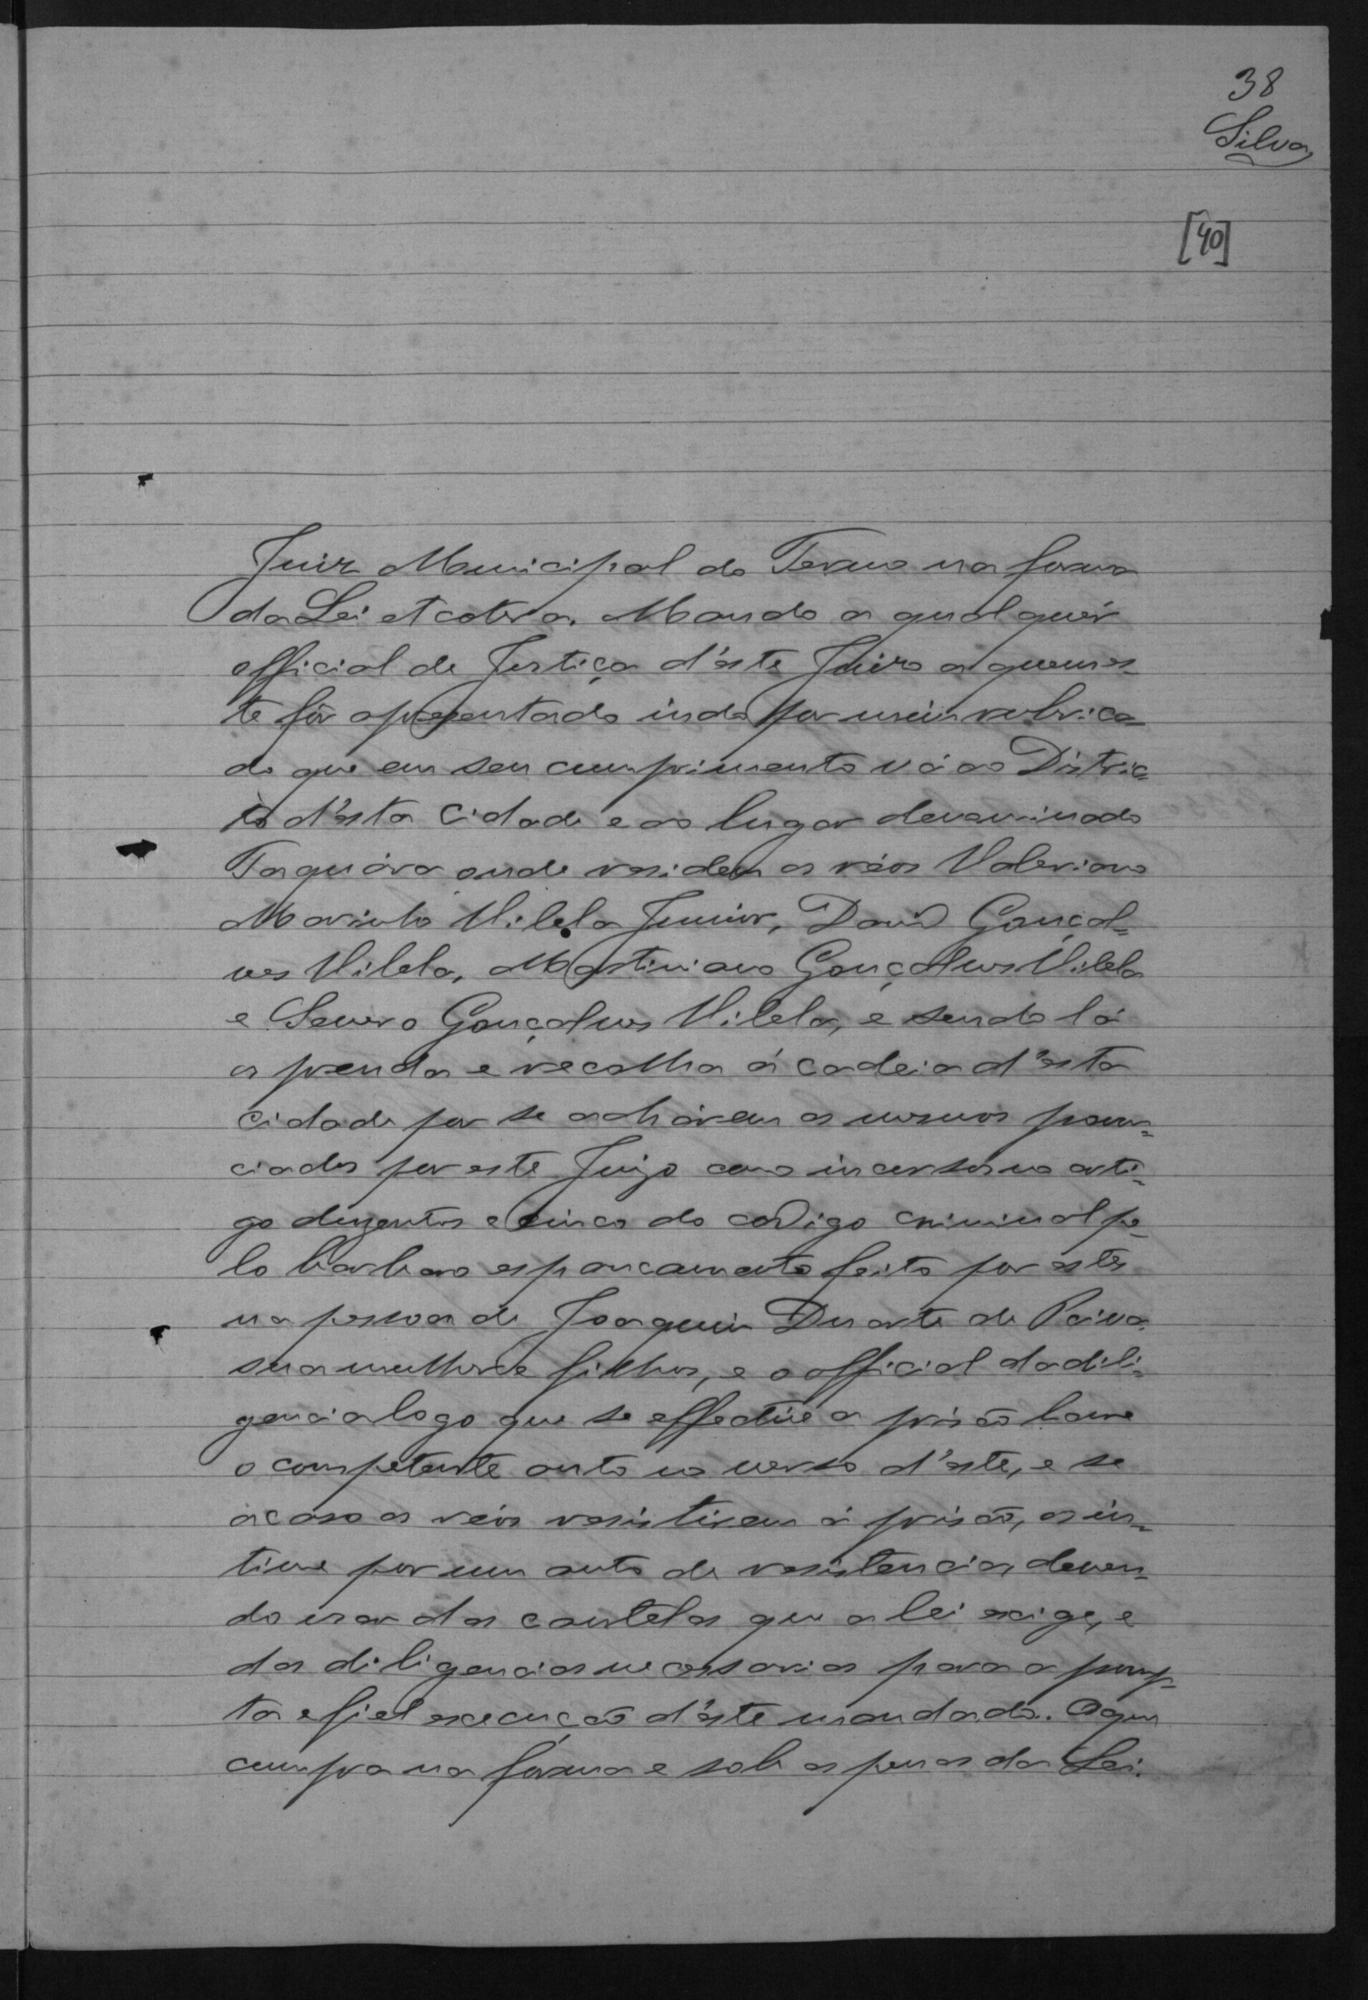 38
Silva
[40]
Juiz Municipal do Termo na forma
da Lei etcetera. Mando a qualquér
official de Justiça d'éste Juizo a quem es-
te fôr apresentado indo por mim rubrica-
do que em seu cumprimento vá ao Distric-
to d'ésta Cidade e ao lugar denominado
Taquára onde residem os réos Valeriano
Marinho Vilela Junior, David Gonçal-
ves Vilela, Mastiniano Gonçalves Vilela
e Severo Gonçalves Vilela, e sendo lá
os prenda e recolha á cadeia d'ésta
cidade por se achárem os mesmos pronun-
ciados por este Juizo como incursos no arti-
go duzentos e cinco do codigo criminal pe-
lo barbaro espancamento feito por estes
na pessoa de Joaquim Duarte de Paiva
sua mulher e filhos, e o official da dili-
gencia logo que se effectúe a prisão lavre
o competente auto no verso d'éste, e se
acaso os réos resistirem á prisão, os in-
time por um auto de resistencia, deven-
do usar das cautelas que a lei exige, e
das diligencias necessarias para a promp-
ta e fiel execução d'éste mandado. O que
cumpra na fórma e sob as penas da Lei.